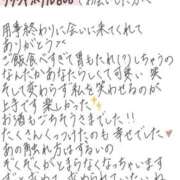 用事終わりに会いに来てくれて
ありがとうっ
ご飯食べすぎて胃もたれ(?)しちゃうの
なんだかあなたらしくて可愛い笑
そして変わらず私を笑わせるのが
上手です楽しかった✨
お酒もごちそうさまでした!!
たくさんくっつけたのも幸せでした♥
あの触れ方はずるい
ぞくぞくがとまらなくなっちゃいます